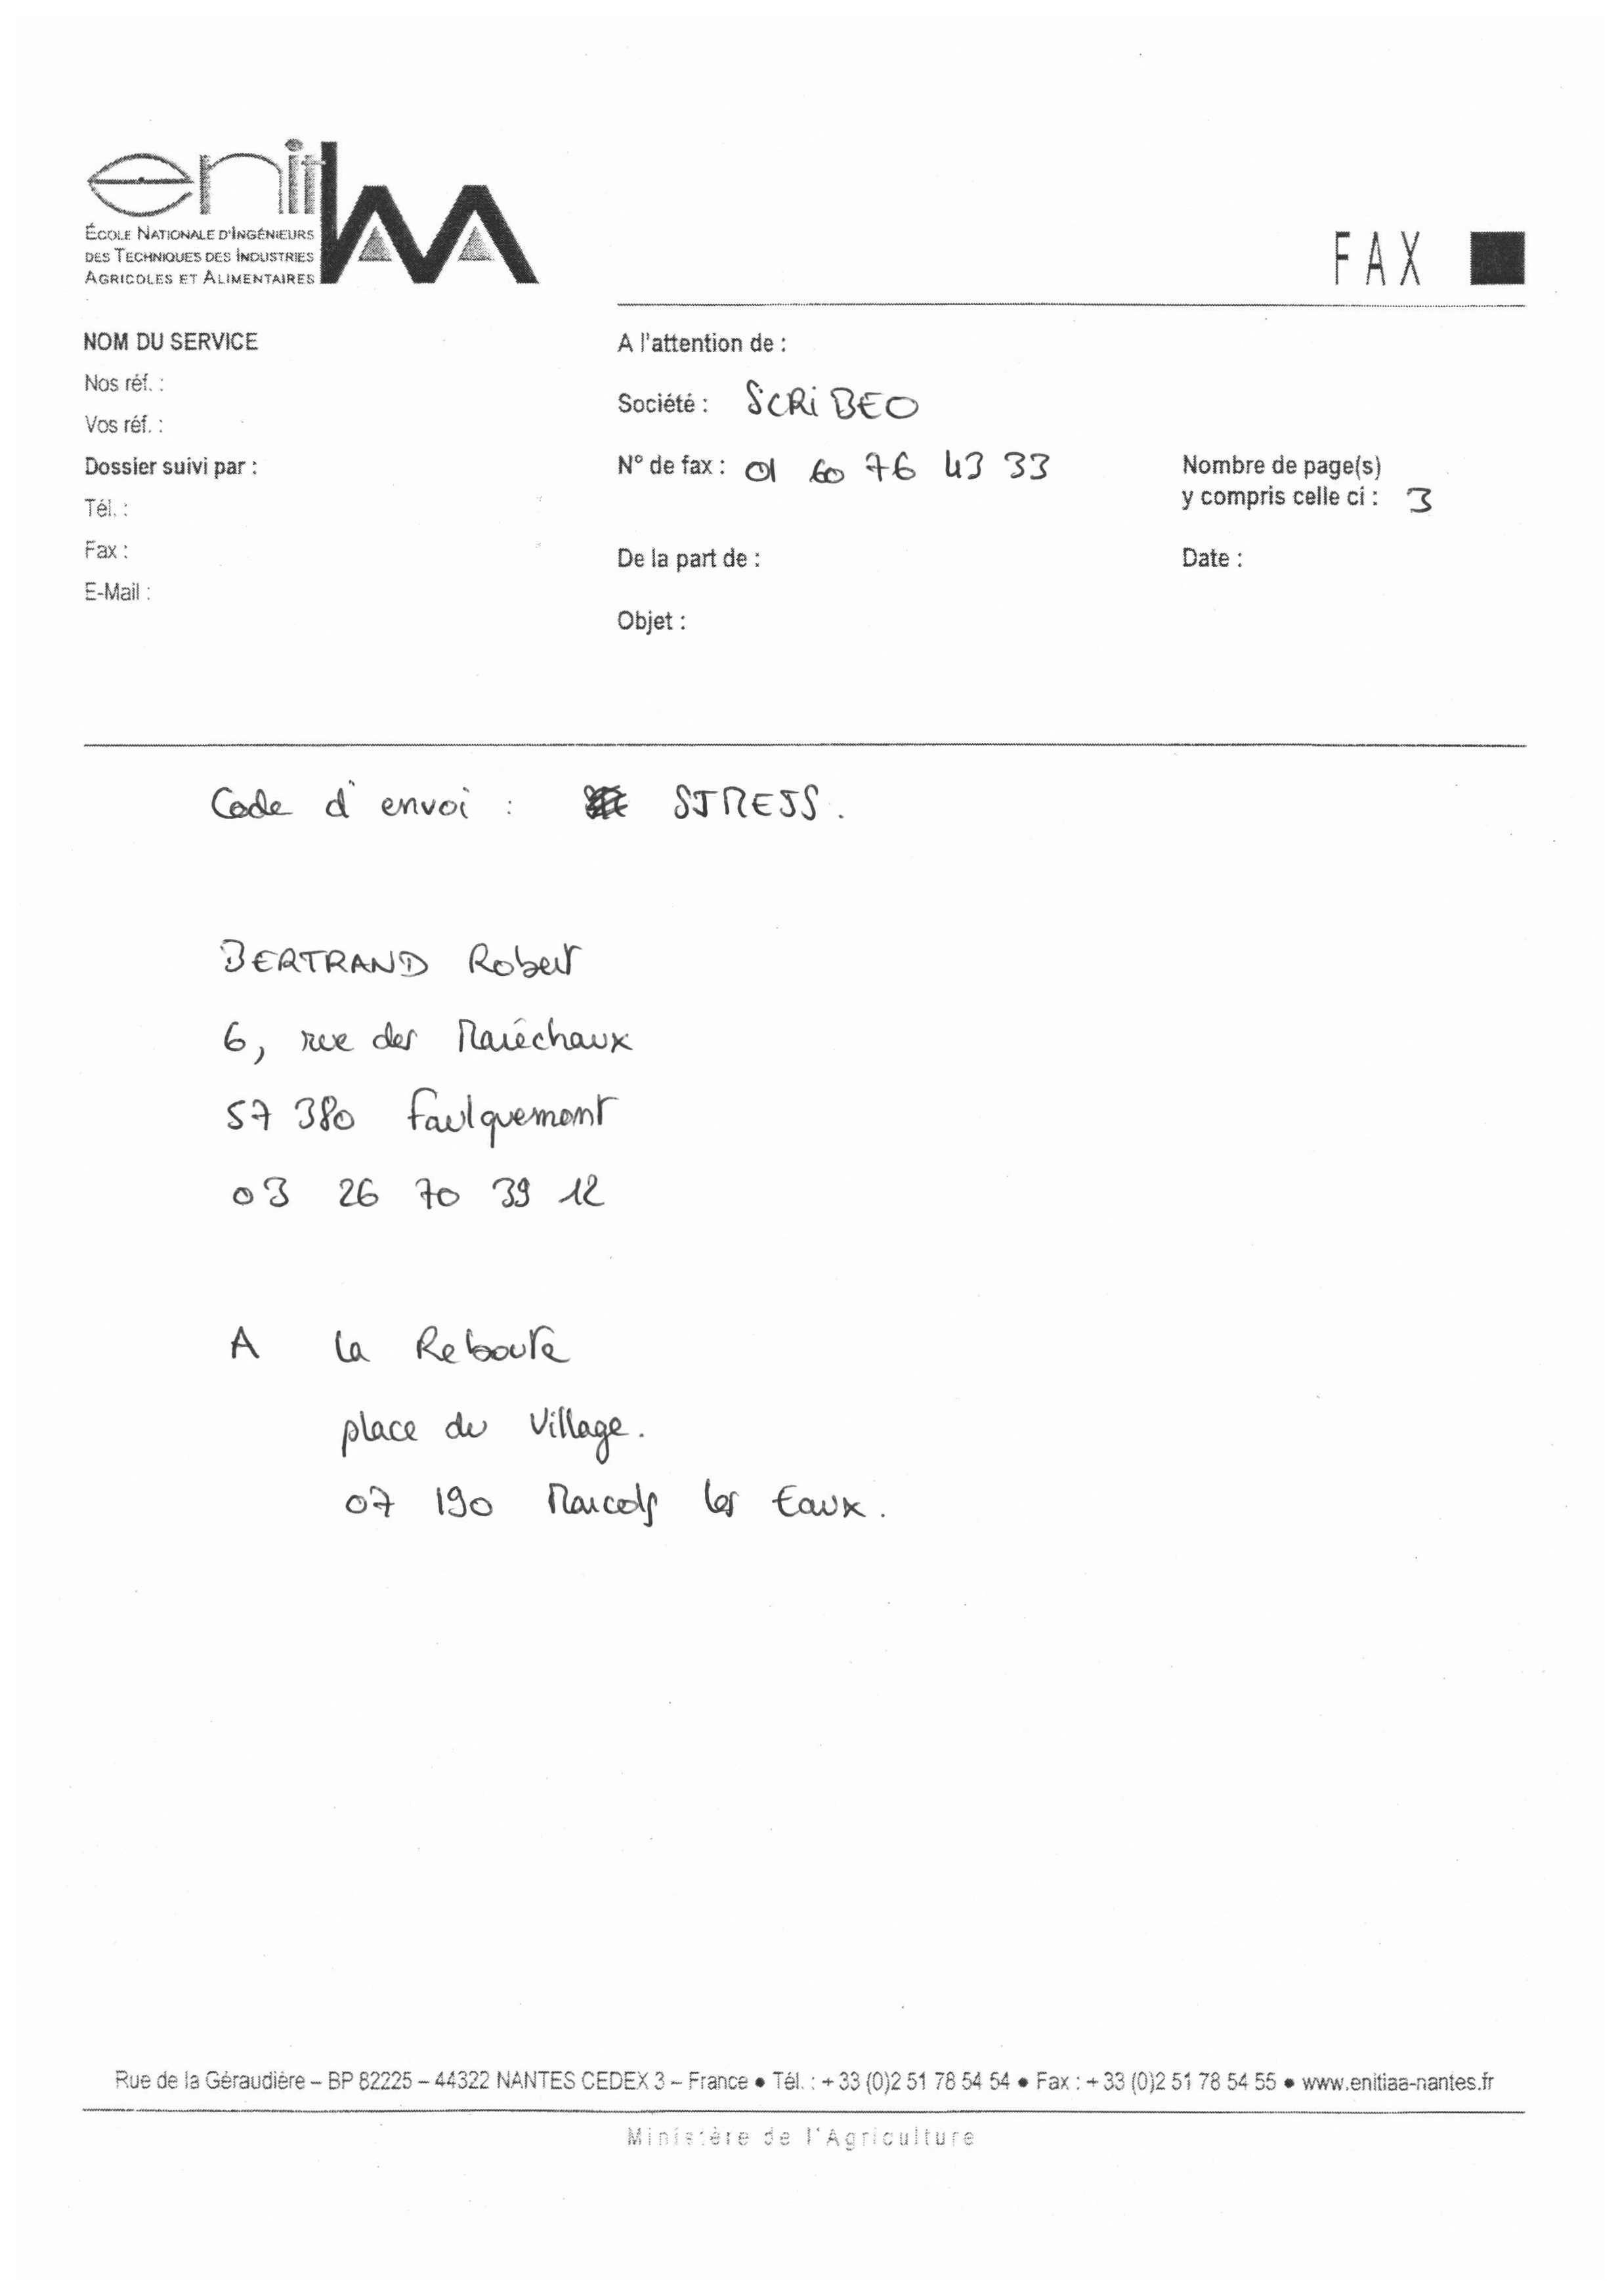 enitIAA
ÉCOLE NATIONALE D'INGÉNIEURS
DES TECHNIQUES DES INDUSTRIES
AGRICOLES ET ALIMENTAIRES
FAX
NOM DU SERVICE
Nos réf. :
Vos réf. :
Dossier suivi par :
Tél. :
Fax :
E-Mail :
A l'attention de :
Société : SCRiBEO
N° de fax : 01 60 76 43 33
Nombre de page(s)
y compris celle ci : 3
De la part de :
Date :
Objet :
Code d'envoi : STRESS.
BERTRAND Robert
6, rue des Maréchaux
57 380 Faulquemont
03 26 70 39 12
A la Reboute
place du Village.
07 190 Marcols les Eaux.
Rue de la Géraudière – BP 82225 – 44322 NANTES CEDEX 3 – France ● Tél. : + 33 (0)2 51 78 54 54 ● Fax : + 33 (0)2 51 78 54 55 ● www.enitiaa-nantes.fr
Ministère de l'Agriculture